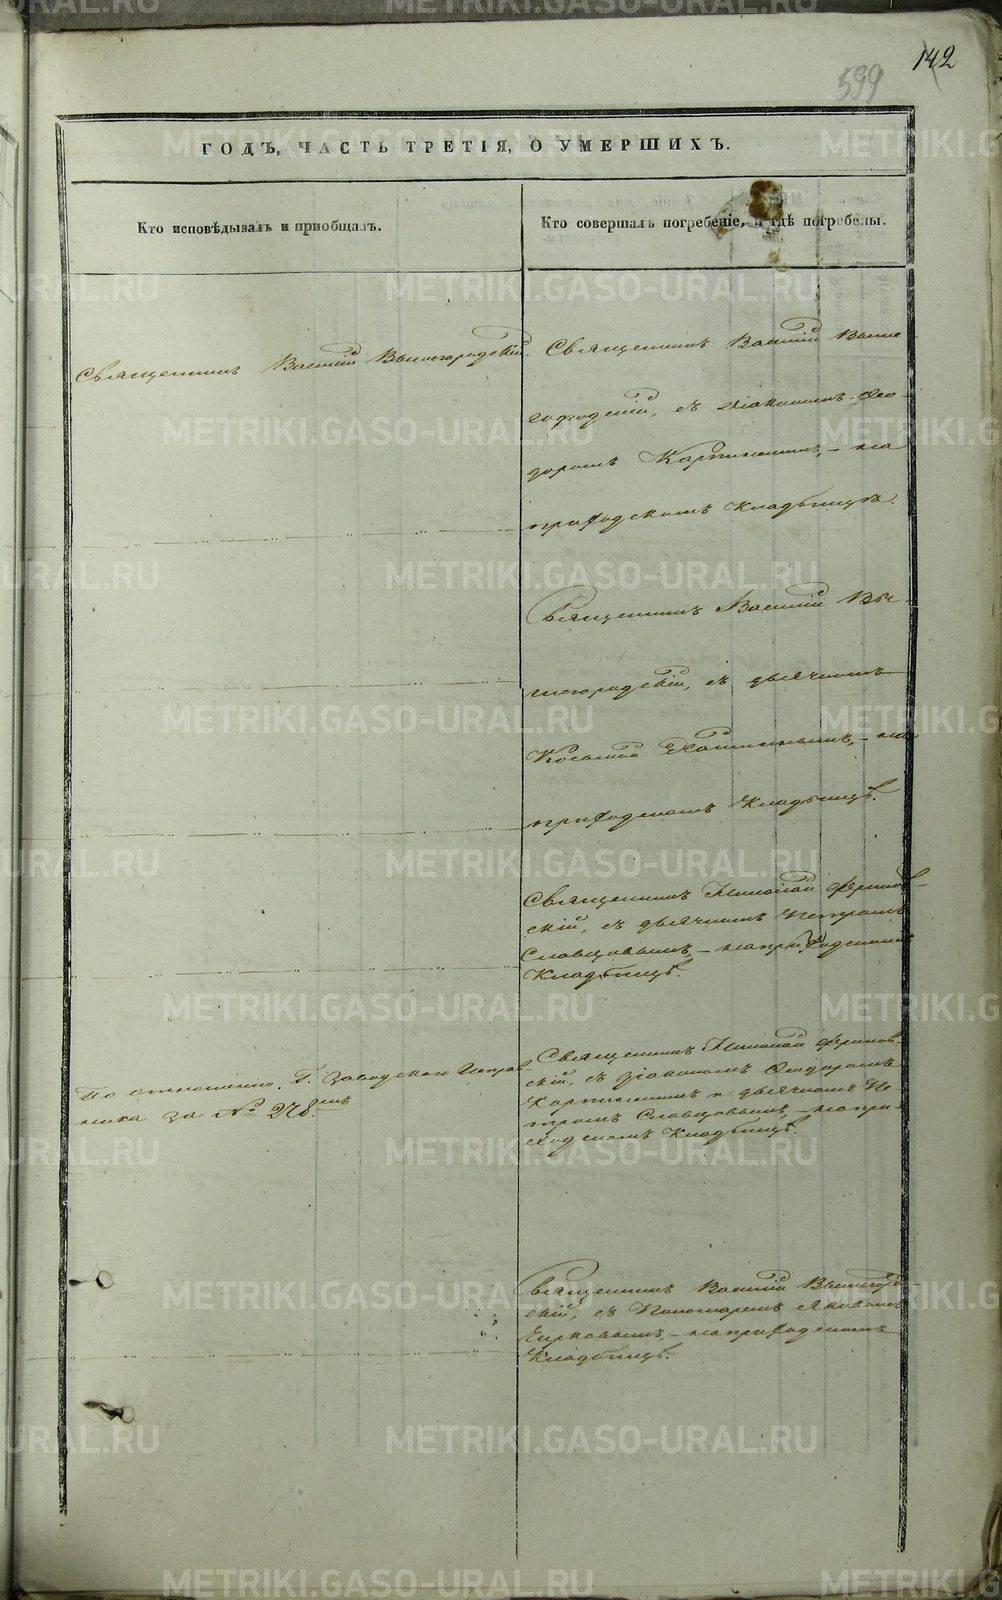 142
599
ГОДЪ, ЧАСТЬ ТРЕТІЯ, О УМЕРШИХЪ.
Кто исповѣдывалъ и пріобщалъ.
Кто совершалъ погребеніе, и гдѣ погребены.
Священникъ Василій Вышегородскій.
Священникъ Василій Выше
городскій, съ діакономъ Ѳео-
доромъ Карпинскимъ, - на
приходскомъ кладбищѣ.
Священникъ Василій Вы-
шегородскій, съ дьячкомъ
Косьмой, - на
приходскомъ кладбищѣ.
Священникъ Николай
скій, съ дьячкомъ Петромъ
Словцовымъ, - на приходскомъ
кладбищѣ.
По отношенію Г. Заводскаго Исправ-
ника за № 278.мъ
Священникъ Николай
скій, съ діакономъ Ѳеодоромъ
Карпинскимъ и дьячкомъ Пе-
тромъ Словцовымъ, - на при-
ходскомъ кладбищѣ.
Священникъ Василій Вышегород-
скій, съ Пономаремъ Яковомъ
- на приходскомъ
кладбищѣ.
METRIKI.GASO-URAL.RU